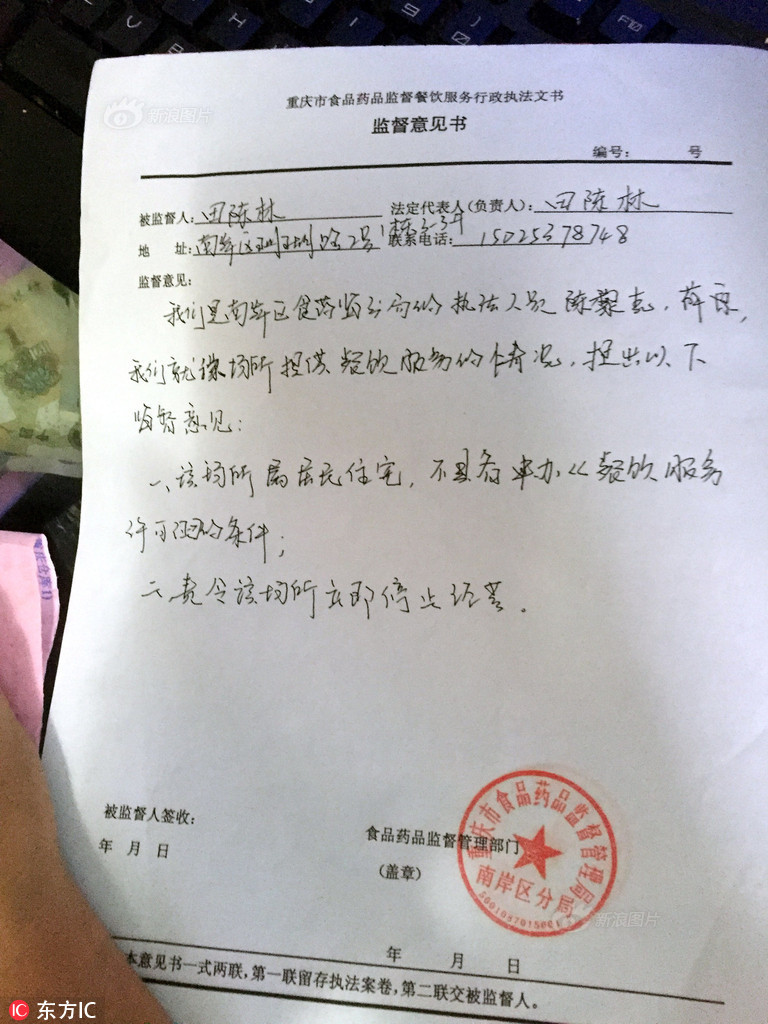 新浪图片
重庆市食品药品监督餐饮服务行政执法文书
监督意见书
编号: 号
被监督人: 田陈林 法定代表人(负责人): 田陈林
地 址: 南岸区 路2号1栋3-3号 联系电话: 15025378748
监督意见:
我们是南岸区食药监分局的执法人员 陈 、薛 ,
我们就你场所提供餐饮服务的情况,提出以下
监督意见:
一、该场所属居民住宅,不具备申办《餐饮服务
许可证的条件;
二、责令该场所立即停止经营。
被监督人签收:
年 月 日
食品药品监督管理部门
(盖章)
重庆市食品药品监督管理局
南岸区分局
新浪图片
年 月 日
本意见书一式两联,第一联留存执法案卷,第二联交被监督人。
IC 东方IC